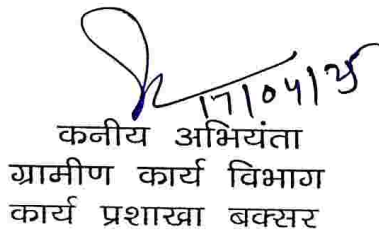 17/04/25
कनीय अभियंता
ग्रामीण कार्य विभाग
कार्य प्रशाखा बक्सर